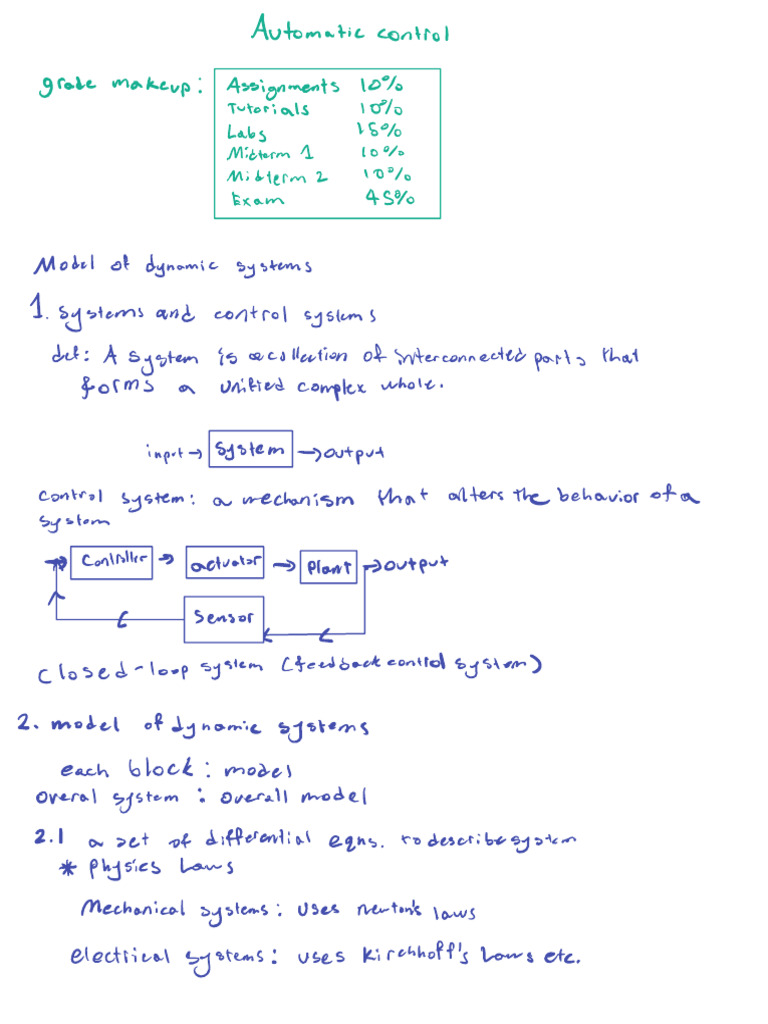 Automatic control
grade makeup:
Assignments 10%
Tutorials 10%
Labs 15%
Midterm 1 10%
Midterm 2 10%
Exam 45%
Model of dynamic systems
1. systems and control systems
def: A system is a collection of interconnected parts that
forms a unified complex whole.
input → system → output
control system: a mechanism that alters the behavior of a
system
→ controller → actuator → plant → output
sensor
closed-loop system (feedback control system)
2. model of dynamic systems
each block: model
overal system: overall model
2.1 a set of differential eqns. to describe system
* physics laws
Mechanical systems: uses newton's laws
electrical systems: uses kirchhoff's laws etc.